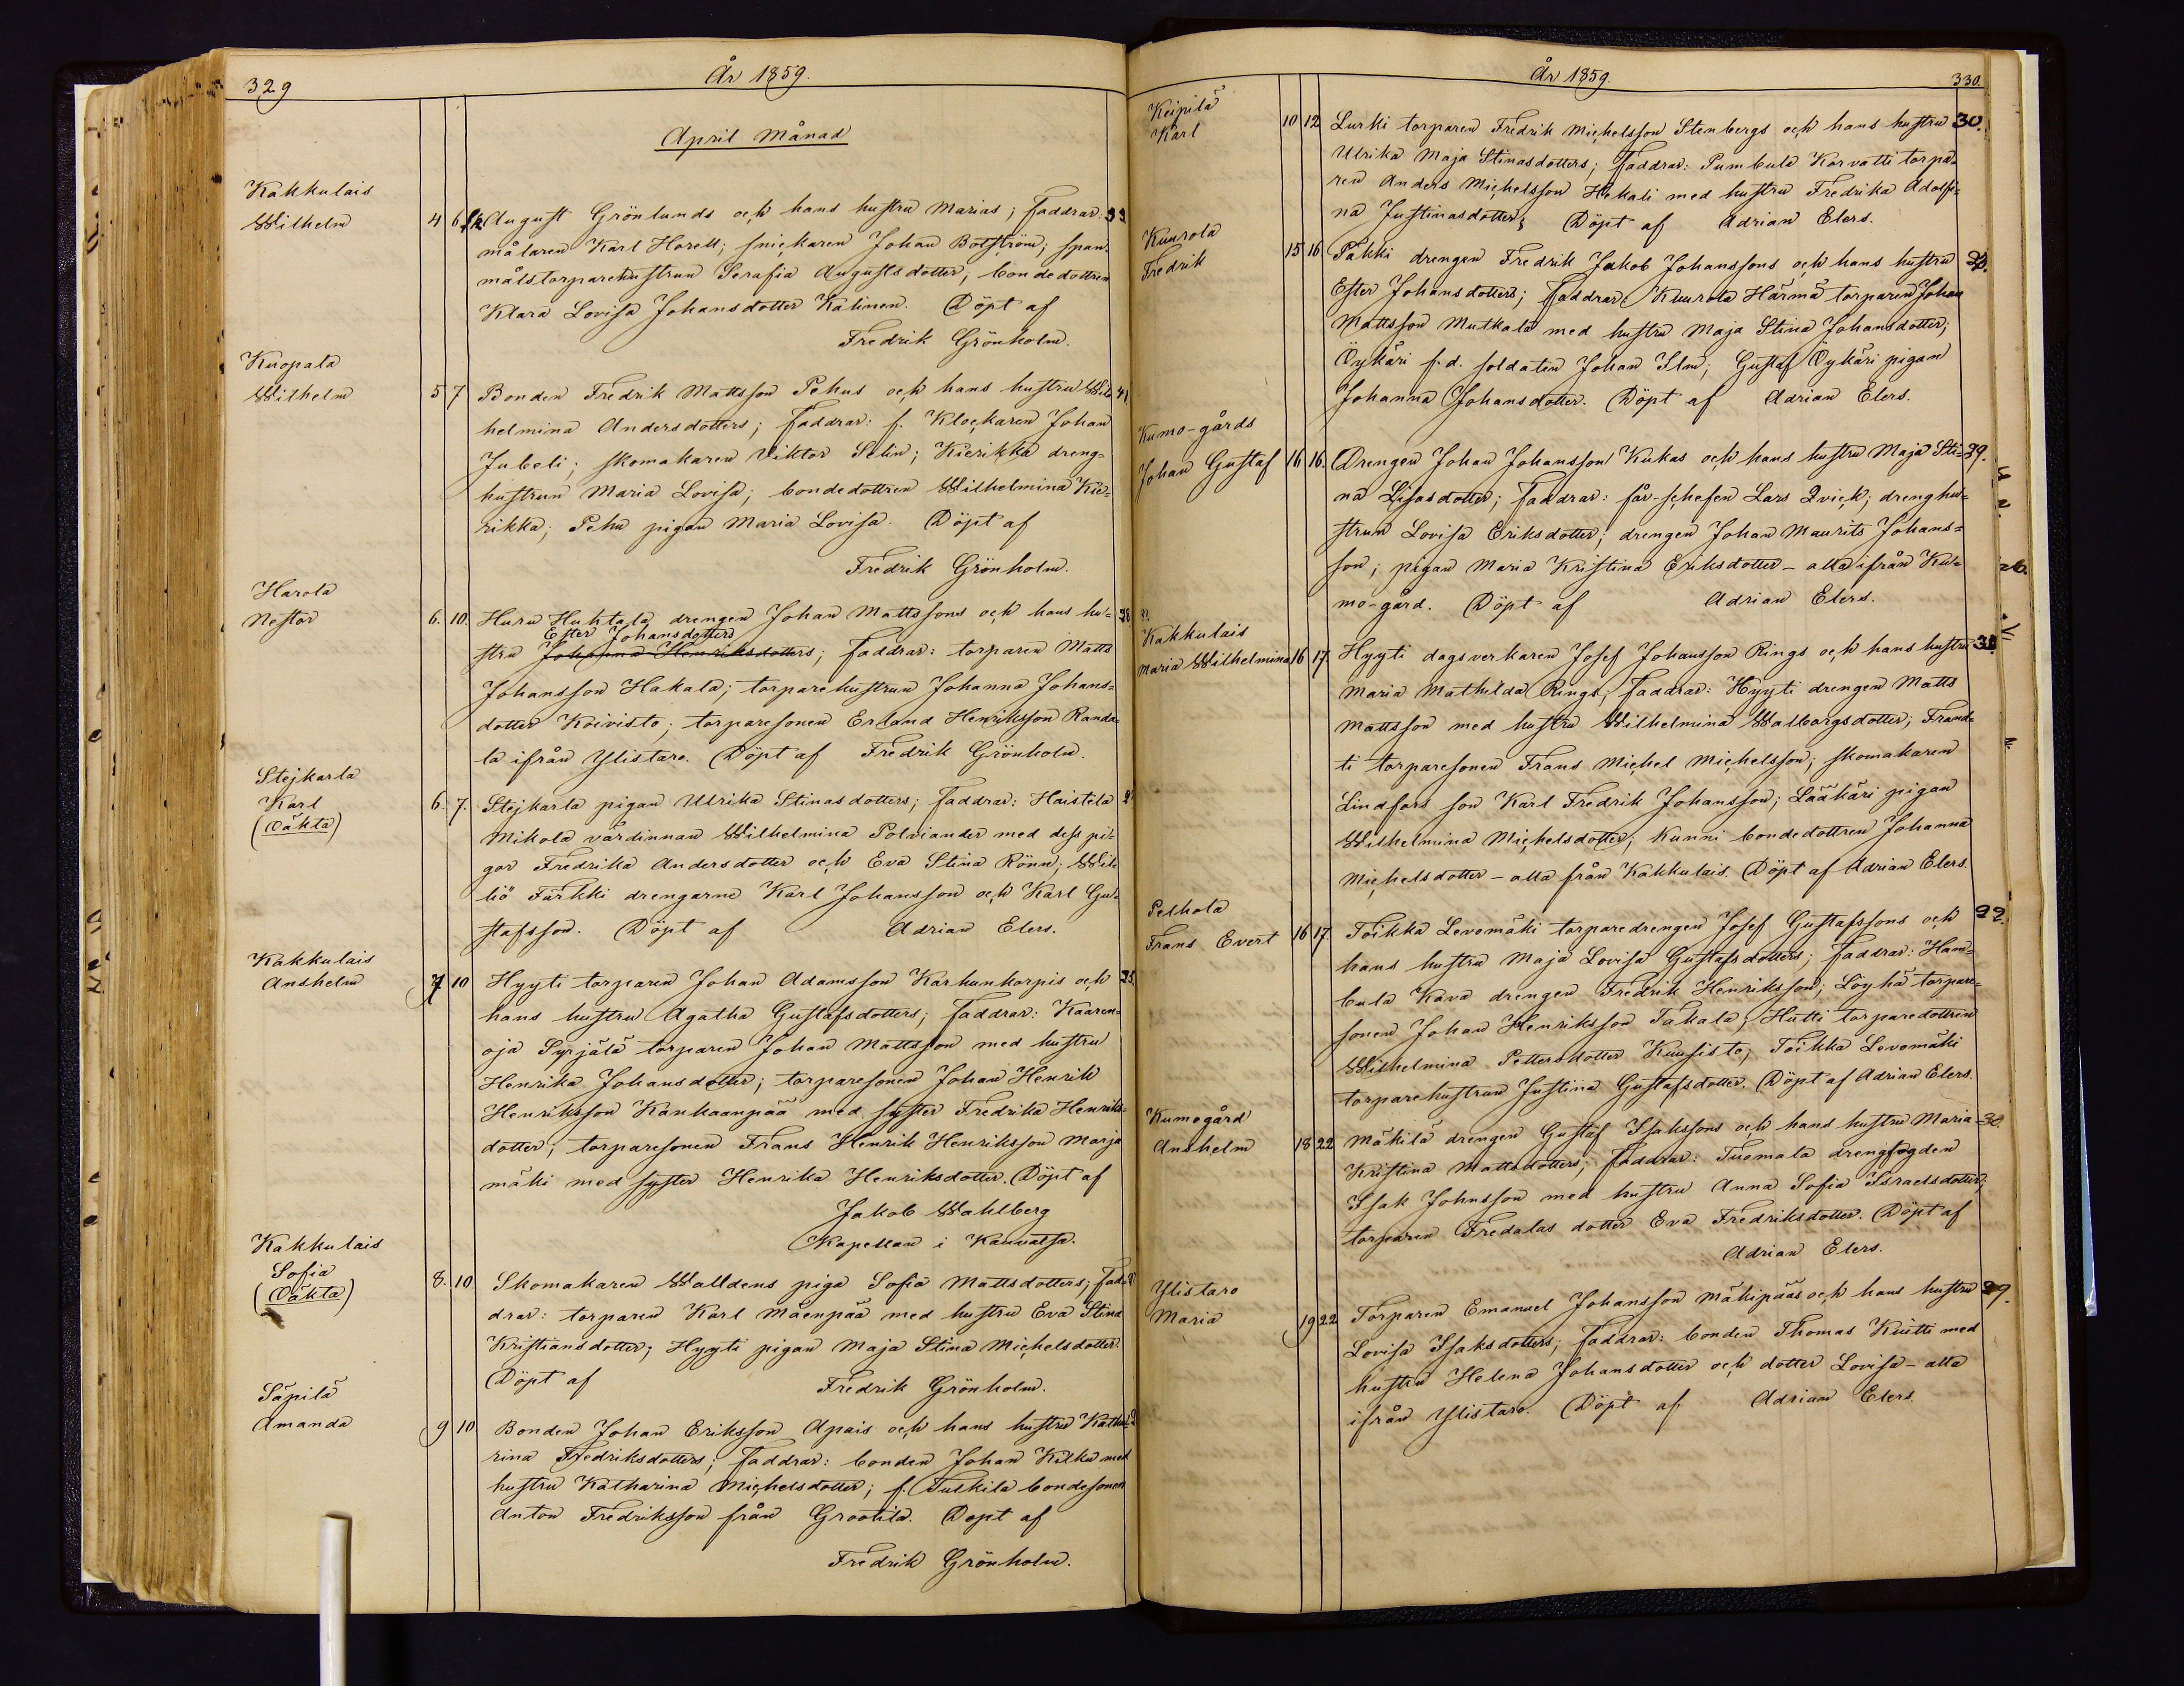 329
År 1859.
April Månad
Kakkulais
Wilhelm 4 6 August Grönlunds och hans hustru Marias; Faddrar: 33
målaren Karl Horell; snickaren Johan Botström; span-
målstorparehustrun Serafia Augustsdotter; bondedottren
Klara Lovisa Johansdotter Kalinen. Döpt af
Fredrik Grönholm.
Kuopala
Wilhelm 5 7 Bonden Fredrik Mattsson Pehus och hans hustru Wil- 41
helmina Andersdotters; Faddrar: f. Klockaren Johan
Jubeli; skomakaren Viktor Selin; Kierikka dreng-
hustrun Maria Lovisa; bondedottren Wilhelmina Kie-
rikka; Pehu pigan Maria Lovisa. Döpt af
Fredrik Grönholm.
Harola
Nestor 6. 10. Huru Huhtala drengen Johan Mattssons och hans hu- 28
Ester Johansdotters
stru Johanna Henriksdotters; Faddrar: torparen Matts
Johansson Hakala; torparehustrun Johanna Johans-
dotter Koivisto; torparesonen Erland Henriksson Randa-
la ifrån Ylistaro. Döpt af Fredrik Grönholm.
Stejkarla
Karl 6. 7. Stejkarla pigan Ulrika Stinasdotters; Faddrar: Haistela
(Oäkta) Mikola värdinnan Wilhelmina Polviander med dess pi-
gor Fredrika Andersdotter och Eva Stina Rönn; Wil-
liö Färkki drengarne Karl Johansson och Karl Gu-
stafsson. Döpt af Adrian Elers.
Kakkulais
Anshelm 7 10 Hyyti torparen Johan Adamsson Karhunkorpis och 25.
hans hustru Agatha Gustafsdotters; Faddrar: Kaaren-
oja Syrjälä torparen Johan Mattsson med hustru
Henrika Johansdotter; torparesonen Johan Henrik
Henriksson Kankaanpää med syster Fredrika Henriks-
dotter; torparesonen Frans Henrik Henriksson Marja
mäki med syster Henrika Henriksdotter. Döpt af
Jakob Wahlberg
Kapellan i Kauvatsa.
Kakkulais
Sofia 8. 10 Skomakaren Walldens piga Sofia Mattsdotters; Fad-
(Oäkta) drar: torparen Karl Mäenpää med hustru Eva Stina
Kristiansdotter; Hyyti pigan Maja Stina Michelsdotter.
Döpt af Fredrik Grönholm.
Säpilä
Amanda 9 10. Bonden Johan Eriksson Apais och hans hustru Katha-
rina Fredriksdotters; Faddrar: bonden Johan Kilku med
hustru Katharina Michelsdotter; f. Tulkila bondesonen
Anton Fredriksson från Grootila. Döpt af
Fredrik Grönholm.
År 1859.
330.
Keipilä
Karl 10 12 Lurki torparen Fredrik Michelsson Stenbergs och hans hustru 30.
Ulrika Maja Stinasdotters; Faddrar: Pumbula Korvatti torpa-
ren Anders Michelsson Hekali med hustru Fredrika Adolfi-
na Justinasdotter; Döpt af Adrian Elers.
Kuurola
Fredrik 15 16 Päkki drengen Fredrik Jakob Johanssons och hans hustru
Ester Johansdotters; Faddrar: Kuurola Härmä torparen Johan
Mattsson Mutkala med hustru Maja Stina Johansdotter;
Öykäri f.d. soldaten Johan Ilm; Gustaf Öykäri pigan
Johanna Johansdotter. Döpt af Adrian Elers.
Kumo-gårds
Johan Gustaf 16 16. Drengen Johan Johansson Kukas och hans hustru Maja Sti- 39.
na Lisasdotter; Faddrar: får-schefen Lars Qvick; drenghu-
strun Lovisa Eriksdotter; drengen Johan Maurits Johans-
son; pigan Maria Kristina Eriksdotter - alla ifrån Ku-
mo-gård. Döpt af Adrian Elers.
Kakkulais
Maria Wilhelmina 16 17. Hyyti dagsverkaren Josef Johansson Rings och hans hustru 38.
Maria Mathilda Rings; Faddrar: Hyyti drengen Matts
Mattsson med hustru Wilhelmina Walborgsdotter; Frand-
ti torparesonen Frans Michel Michelsson; skomakaren
Lindfors son Karl Fredrik Johansson; Lääkäri pigan
Wilhelmina Michelsdotter; Kunni bondedottren Johanna
Michelsdotter - alla från Kakkulais. Döpt af Adrian Elers.
Pelhola
Frans Evert 16 17. Toikka Levomäki torparedrengen Josef Gustafssons och 22.
hans hustru Maja Lovisa Gustafsdotters; Faddrar: Ham-
bula Kava drengen Fredrik Henriksson; Löyhä torpare-
sonen Johan Henriksson Takala; Hutti torparedottren
Wilhelmina Pettersdotter Kuusisto; Toikka Levomäki
torparehustrun Justina Gustafsdotter. Döpt af Adrian Elers.
Kumogård
Anshelm 18 22 Mäkilä drengen Gustaf Isakssons och hans hustru Maria 30.
Kristina Mattsdotters; Faddrar: Tuomala drengfogden
Isak Johnsson med hustru Anna Sofia Israelsdotter;
torparen Fredalas dotter Eva Fredriksdotter. Döpt af
Adrian Elers.
Ylistaro
Maria 19 22 Torparen Emanuel Johansson Mäkipääs och hans hustru 29.
Lovisa Isaksdotters; Faddrar: bonden Thomas Kuitti med
hustru Helena Johansdotter och dotter Lovisa - alla
ifrån Ylistaro. Döpt af Adrian Elers.